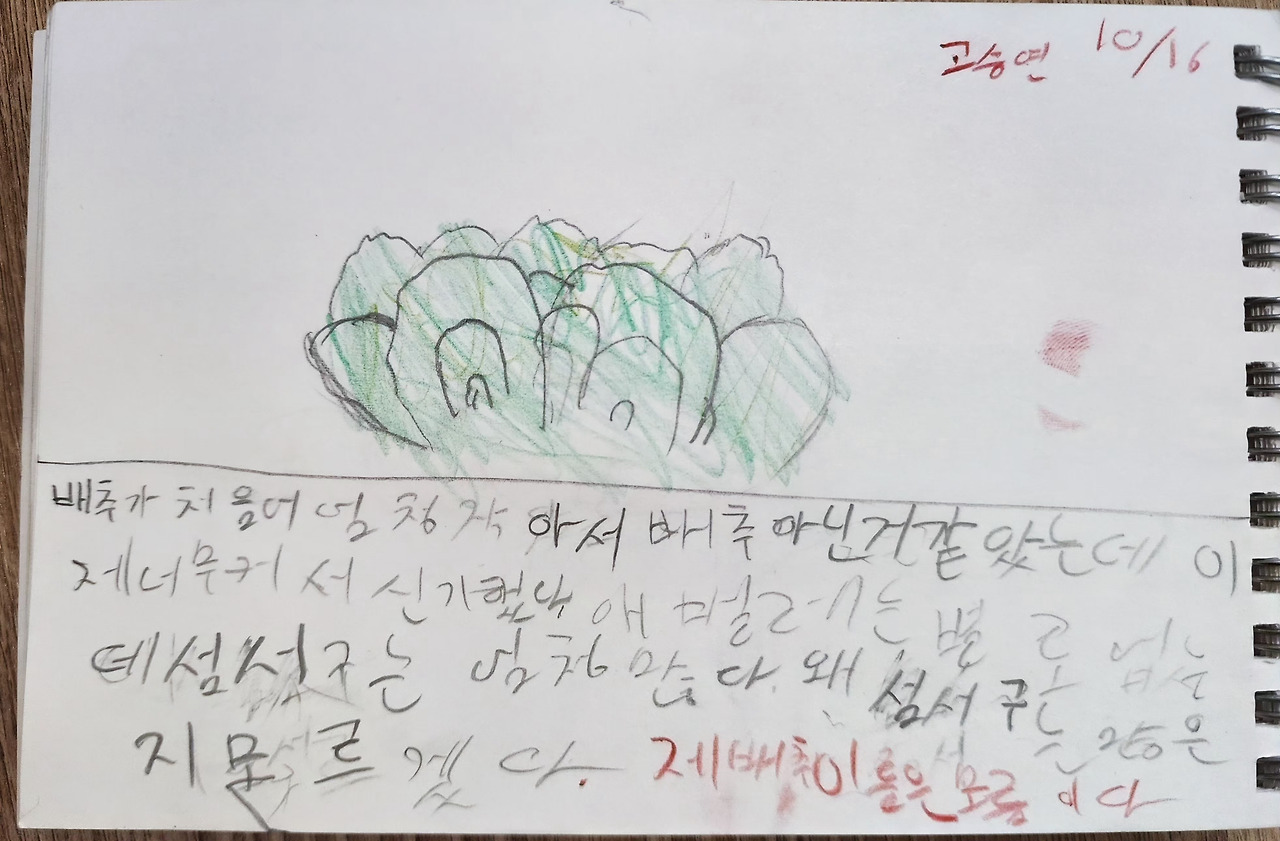 고승연 10/16
배추가 처음에 엄청 작아서 배추 아닌거 같았는데 이
제 너무 커서 신기했다. 애벌레는 별로 없는
데 섬서구는 엄청 많다. 왜 섬서구는 많은
지 모르겠다. 제 배추 이름은 모름이다